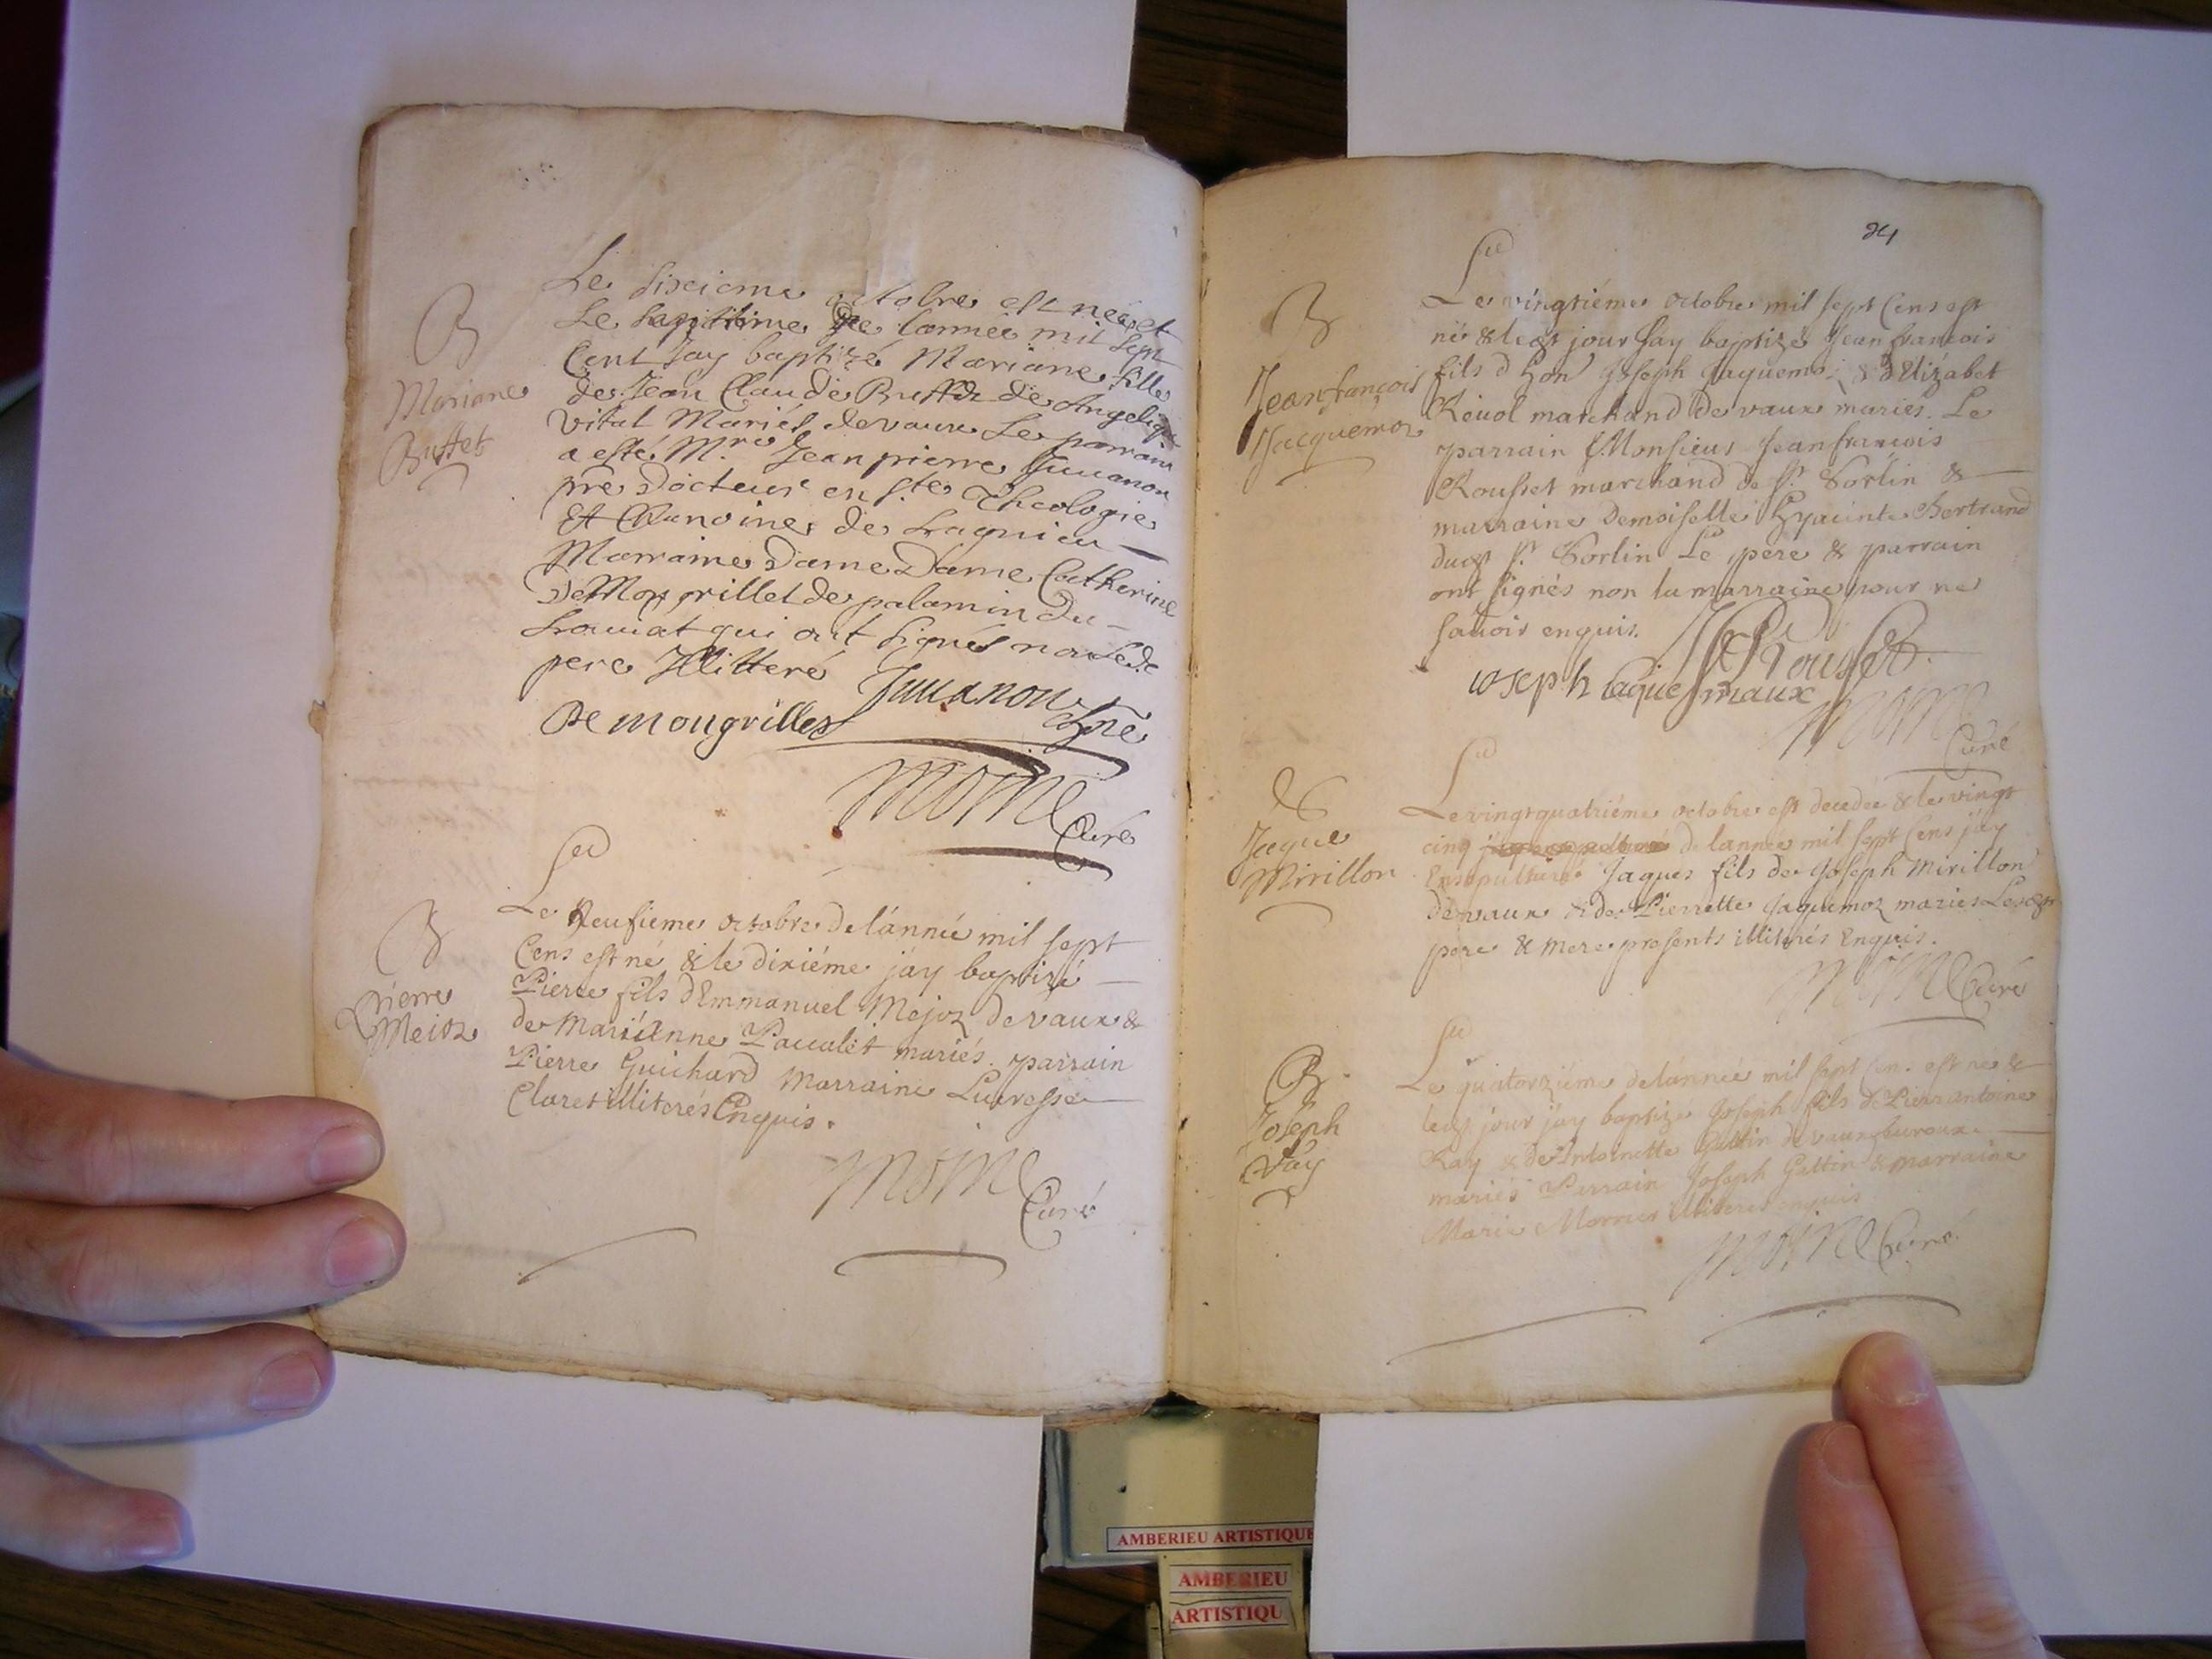 B
Mariane
Buffet
Le sixieme octobre est neé et
Le septitime de lannée mil sept
Cent Jay baptizé Mariane fille
de Jean Claude Buffet de Angelique
vital Mariés devaux Le parrain
a esté M.re Jean pierre Juuanon
pre Docteur en s.te Theologie
Et Chanoine de Lagnieu
Marraine Dame Dame Catherine
De palamin du
qui ont signés non Le d.
pere Illitteré
Juuanon
De mougrillet
Mome Curé
B
Pierre
Meioz
Le Neufieme octobre de lánnée mil sept
Cens est né & le dixiéme jáy baptizé
Pierre fils dEmmanuel Mejoz de vaux &
de Mariánne Paccalet mariés. parrain
Pierre Guichard Marraine Lucresse
Claret illiterés Enquis.
Mome
Curé
24
B
Jean françois
Jacquemoz
Le vingtiéme octobre mil sept Cens est
né & ledt jour Jáy baptizé Jean francois
fils d hon Joseph Jaquemo & dElizabet
Reuol marchand de vaux mariés. Le
parrain Monsieur Jean francois
Rousset marchand de St Sorlin &
marraine Demoiselle Hyacinte Bertrand
dudt St Sorlin Le pere & parrain
ont signés non la marraine pour ne
sauoir enquis.
Rousset
ioseph iaquemaux
Mome
Curé
Jaque
Mirillon
Le vingt quatriéme octobre est decedée & le vingt
cinq de lannée mil sept Cens jáy
Ensepulturé Jaques fils de Joseph Mirillon
de vaux & de Pierrette Jaquemoz mariés Lesdt
pere & mere presents illiterés Enquis.
Mome Curé
B
Joseph
Ráy
Le quatorziéme de lannée mil sept Cen. est né &
ledt jour jáy baptize Joseph fils de Pierr antoine
Ray & de Antoinette Gettin de vaux
mariés Parrain Joseph Gettin & marraine
Marie illiteres enquis
Mome Curé
AMBERIEU ARTISTIQUE
AMBERIEU
ARTISTIQU